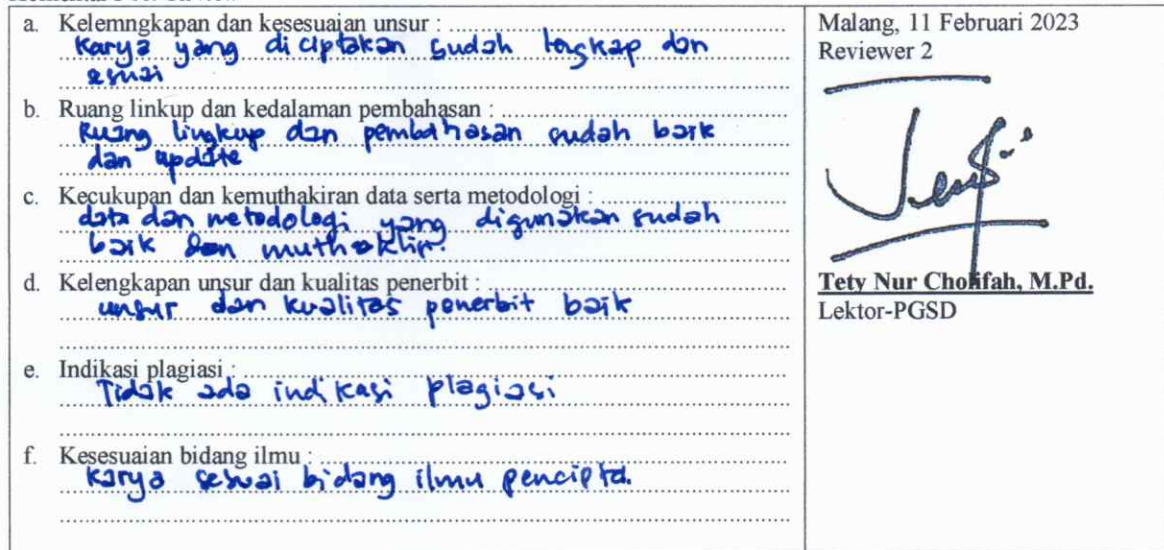 a. Kelemngkapan dan kesesuaian unsur :
karya yang diciptakan sudah lengkap dan
esuai
b. Ruang linkup dan kedalaman pembahasan :
Ruang lingkup dan pembahasan sudah baik
dan update
c. Kecukupan dan kemuthakiran data serta metodologi :
data dan metodologi yang digunakan sudah
baik dan muthakhir.
d. Kelengkapan unsur dan kualitas penerbit :
unsur dan kualitas penerbit baik
e. Indikasi plagiasi :
Tidak ada indikasi plagiasi
f. Kesesuaian bidang ilmu :
karya sesuai bidang ilmu pencipta.
Malang, 11 Februari 2023
Reviewer 2
Tety Nur Cholifah, M.Pd.
Lektor-PGSD